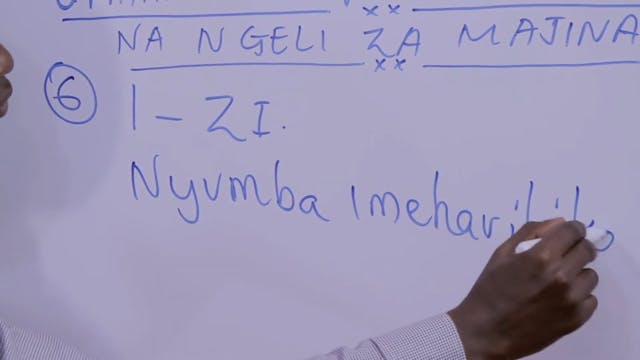 NA NGELI ZA MAJINA
6
I - ZI.
Nyumba imeharib